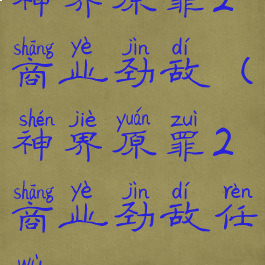 神界原罪2
shāng yè jìn dí
商业劲敌（
shén jiè yuán zuì
神界原罪2
shāng yè jìn dí rèn
商业劲敌任
wù